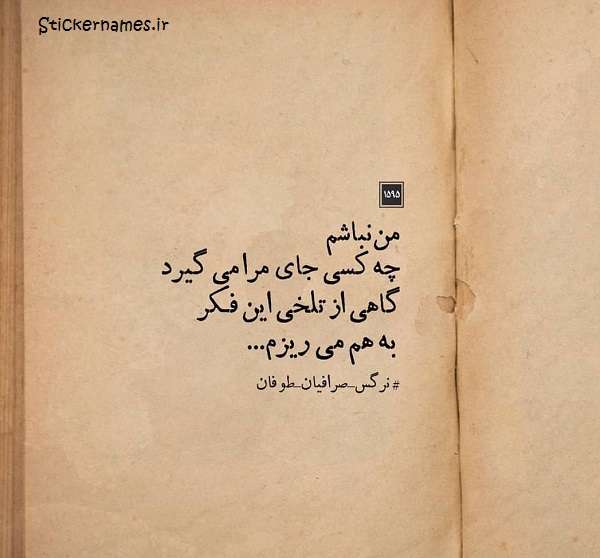 Stickernames.ir
۱۵۹۵
من نباشم
چه کسی جای مرا می گیرد
گاهی از تلخی این فکر
به هم می ریزم...
# نرگس_صرافیان_طوفان